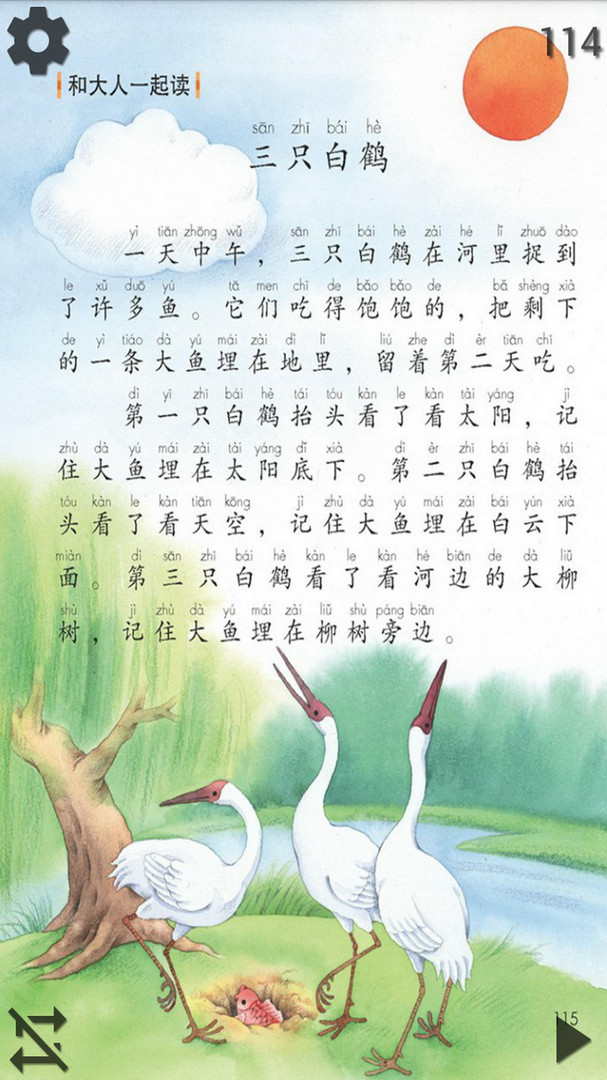 114
和大人一起读
sān zhī bái hè
三只白鹤
yì tiān zhōng wǔ sān zhī bái hè zài hé lǐ zhuō dào
一天中午，三只白鹤在河里捉到
le xǔ duō yú tā men chī de bǎo bǎo de bǎ shèng xià
了许多鱼。它们吃得饱饱的，把剩下
de yì tiáo dà yú mái zài dì lǐ liú zhe dì èr tiān chī
的一条大鱼埋在地里，留着第二天吃。
dì yī zhī bái hè tái tóu kàn le kàn tài yáng jì
第一只白鹤抬头看了看太阳，记
zhù dà yú mái zài tài yáng dǐ xià dì èr zhī bái hè tái
住大鱼埋在太阳底下。第二只白鹤抬
tóu kàn le kàn tiān kōng jì zhù dà yú mái zài bái yún xià
头看了看天空，记住大鱼埋在白云下
miàn dì sān zhī bái hè kàn le kàn hé biān de dà liǔ
面。第三只白鹤看了看河边的大柳
shù jì zhù dà yú mái zài liǔ shù páng biān
树，记住大鱼埋在柳树旁边。
115